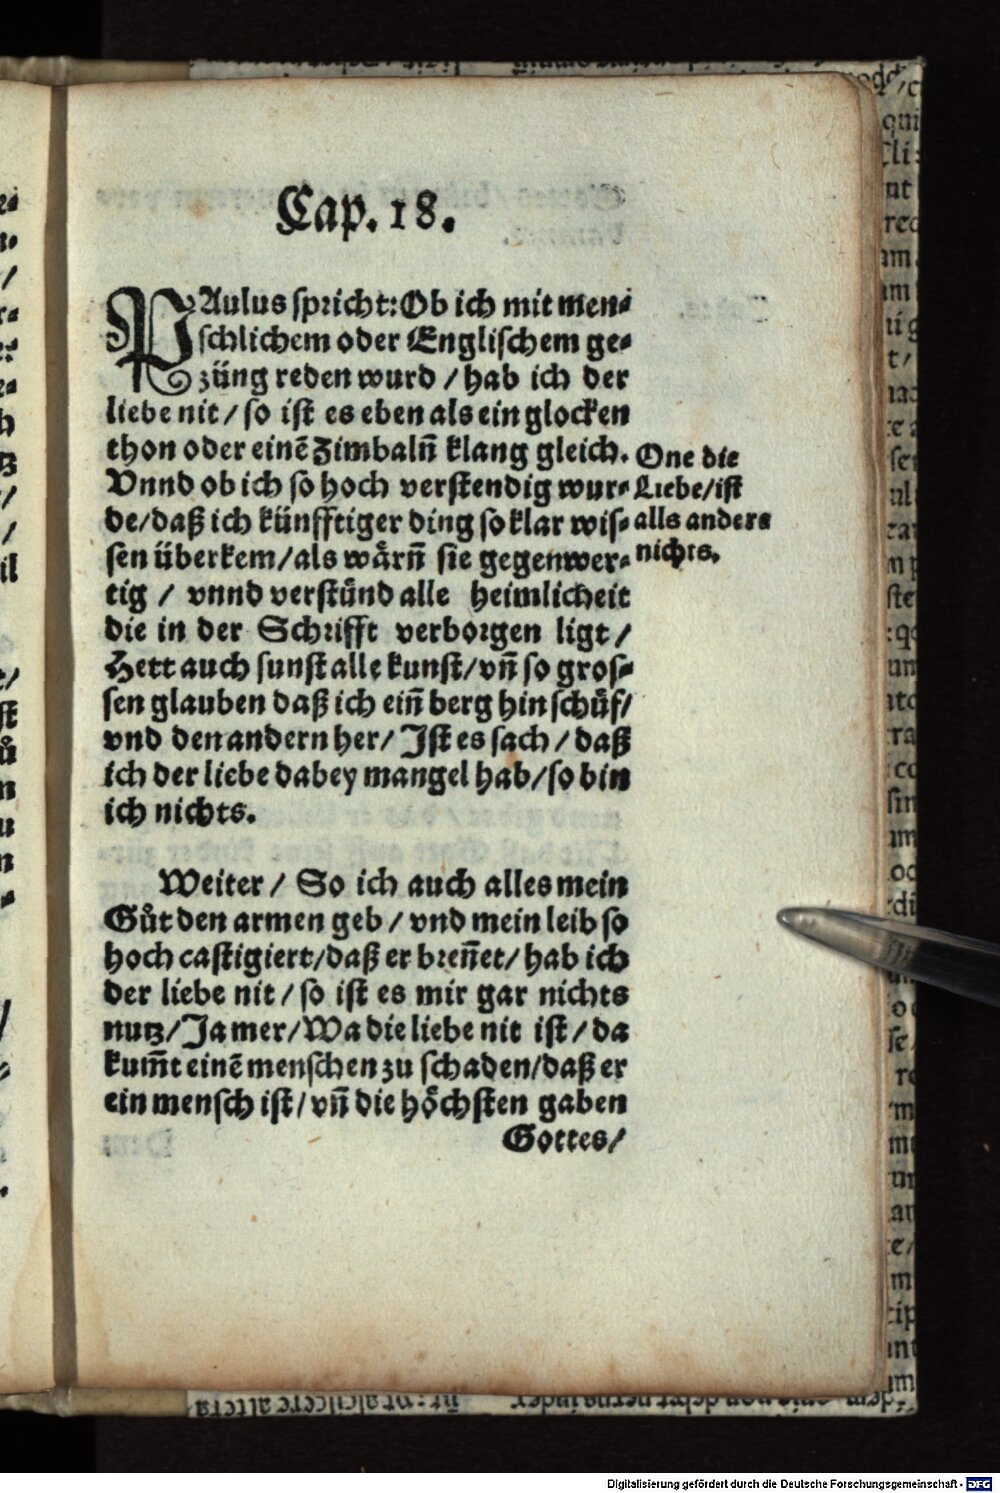 Cap. 18.
PAulus spricht: Ob ich mit men⸗
schlichem oder Englischem ge⸗
züng reden wurd / hab ich der
liebe nit / so ist es eben als ein glocken
thon oder einē Zimbaln̄ klang gleich.
Vnnd ob ich so hoch verstendig wur⸗
de / daß ich künfftiger ding so klar wis⸗
sen überkem / als wåren̄ sie gegenwer⸗
tig / vnnd verstünd alle heimlicheit
die in der Schrifft verborgen ligt /
Hett auch sunst alle kunst / vn̄ so gros⸗
sen glauben daß ich ein̄ berg hin schůf /
vnd den andern her / Ist es sach / daß
ich der liebe dabey mangel hab / so bin
ich nichts.
One die
Liebe / ist
alls anders
nichts.
Weiter / So ich auch alles mein
Gůt den armen geb / vnd mein leib so
hoch castigiert / daß er bren̄et / hab ich
der liebe nit / so ist es mir gar nichts
nutz / Ja mer / Wa die liebe nit ist / da
kum̄t einē menschen zu schaden / daß er
ein mensch ist / vn̄ die höchsten gaben
Gottes /
Digitalisierung gefördert durch die Deutsche Forschungsgemeinschaft - DFG